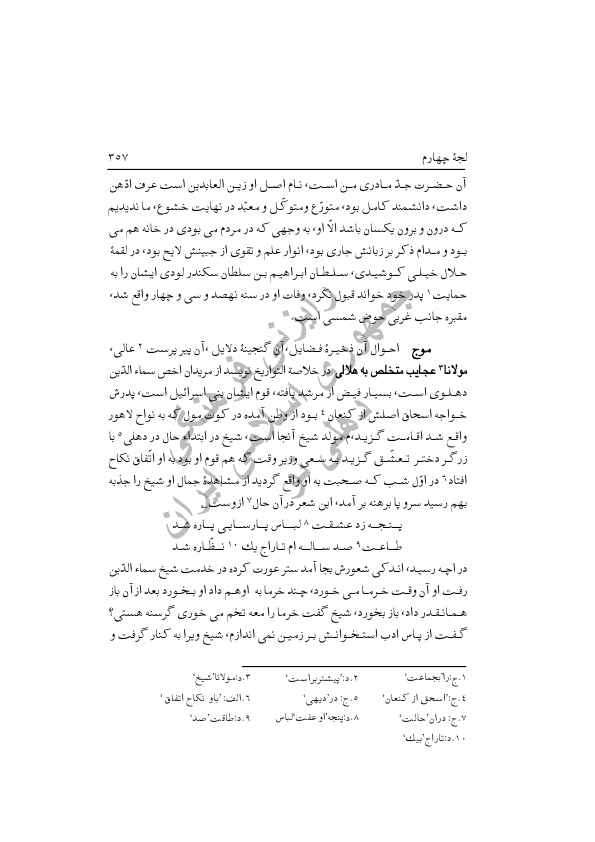 لجۀ چهارم ۳۵۷
آن حضرت جدّ مادری من است، نام اصل او زین العابدین است عرف ادّهن
داشت، دانشمند کامل بود، متورّع ومتوکّل و معبّد در نهایت خشوع، ما ندیدیم
که درون و برون یکسان باشد الّا او، به وجهی که در مردم می بودی در خانه هم می
بود و مدام ذکر بر زبانش جاری بود، انوار علم و تقوی از جبینش لایح بود، در لقمۀ
حلال خیلی کوشیدی، سلطان ابراهیم بن سلطان سکندر لودی ایشان را به
حمایت۱ پدر خود خواند قبول نکرد، وفات او در سنه نهصد و سی و چهار واقع شد،
مقبره جانب غربی حوض شمسی است.
موج احوال آن ذخیرۀ فضایل، آن گنجینۀ دلایل ،آن پیر پرست ۲ عالی،
مولانا۳ عجایب متخلص به هلالی در خلاصة التواریخ نویسد از مریدان اخص سماء الدّین
دهلوی است، بسیار فیض از مرشد یافته، قوم ایشان بنی اسرائیل است، پدرش
خواجه اسحاق اصلش از کنعان ۴ بود از وطن آمده در کوت مول که به نواح لاهور
واقع شد اقامت گزید،م مولد شیخ آنجا است، شیخ در ابتداء حال در دهلی۵ با
زرگر دختر تعشّق گزید به سعی وزیر وقت که هم قوم او بود به او اتّفاق نکاح
افتاد۶ در اوّل شب که صحبت به او واقع گردید از مشاهدۀ جمال او شیخ را جذبه
بهم رسید سرو پا برهنه بر آمد، این شعر در آن حال۷ ازوست.
پنجه زد عشقت ۸ لباس پارسایی پاره شد
طاعت۹ صد ساله ام تاراج یك ۱۰ نظّاره شد
در اچه رسید، اندکی شعورش بجا آمد ستر عورت کرده در خدمت شیخ سماء الدّین
رفت او آن وقت خرما می خورد، چند خرما به اوهم داد او بخورد بعد از آن باز
همانقدر داد، باز بخورد، شیخ گفت خرما را معه تخم می خوری گرسنه هستی؟
گفت از پاس ادب استخوانش بر زمین نمی اندازم، شیخ ویرا به کنار گرفت و
۱.ج:را'بجماعت' ۲.د:'پیشتربراست' ۳.د:مولانا'شیخ'
۴.ج:'اسحق از کنعان' ۵.ج: در'دیهی' ۶.الف: 'باو نکاح اتفاق'
۷.ج: دران'حالت' ۸.د:پنجه'او عفت'لباس ۹.د:طاقت'صد'
۱۰.د:تاراج'بیك'
رایزنی فرهنگی
جمهوری اسلامی ایران
دهلی نو